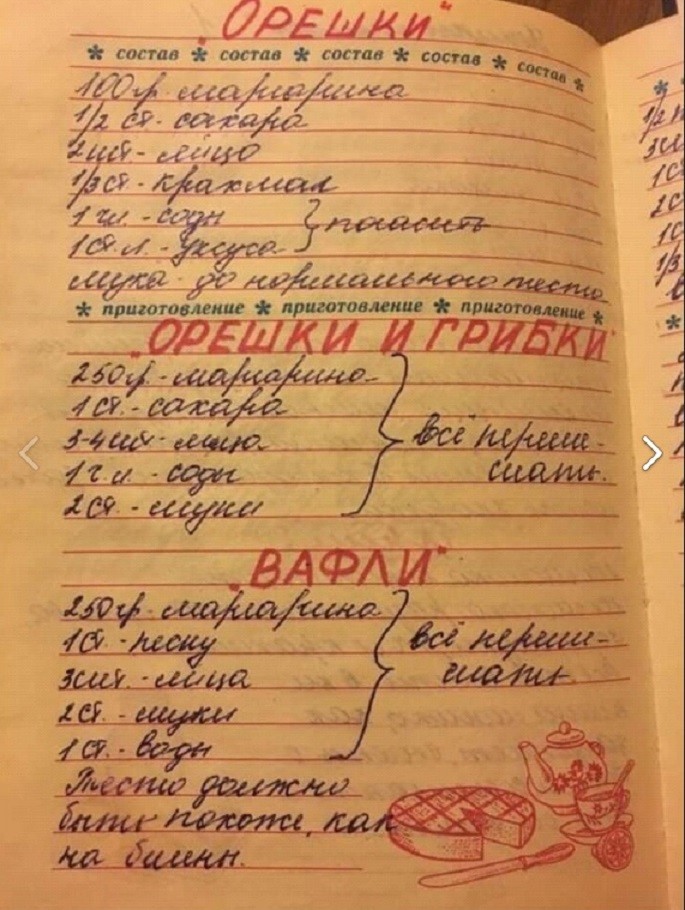 "ОРЕШКИ"
* состав * состав * состав * состав * состав *
100гр. маргарина
1/2 ст. сахара
2шт.- яйцо
1/3ст.- крахмал
1 чл.- соды } погасить
1ст.л.- уксуса
мука - до нормального теста
* приготовление * приготовление * приготовление *
"ОРЕШКИ И ГРИБКИ"
250гр.- маргарина
1ст.- сахара
3-4шт.- яйца } всё переме-
1 ч.л.- соды шать.
2ст.- муки
"ВАФЛИ"
250гр.- маргарина
1ст.- песку } всё переме-
3шт.- яйца шать
2ст.- муки
1ст.- воды
Тесто должно
быть похоже, как
на блины.